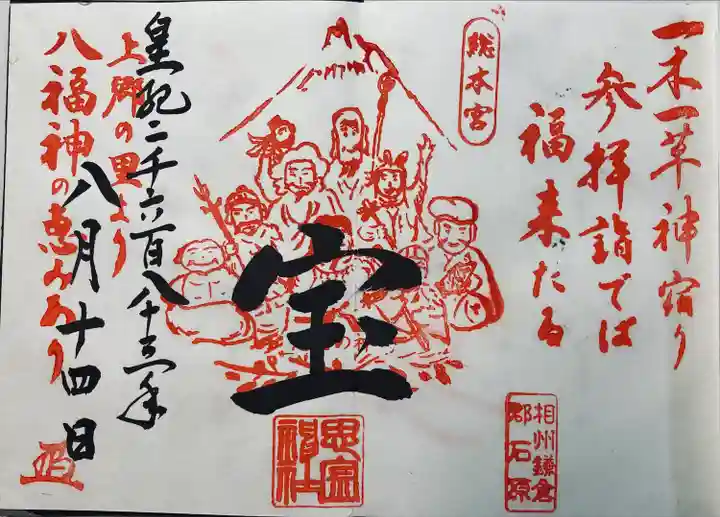 一木一草神宿り
参拝詣では
福来たる
総本宮
宝
皇紀二千六百八十三年
八月十四日
上郷の里より
八福神の恵みあり
相州鎌倉
郡石原